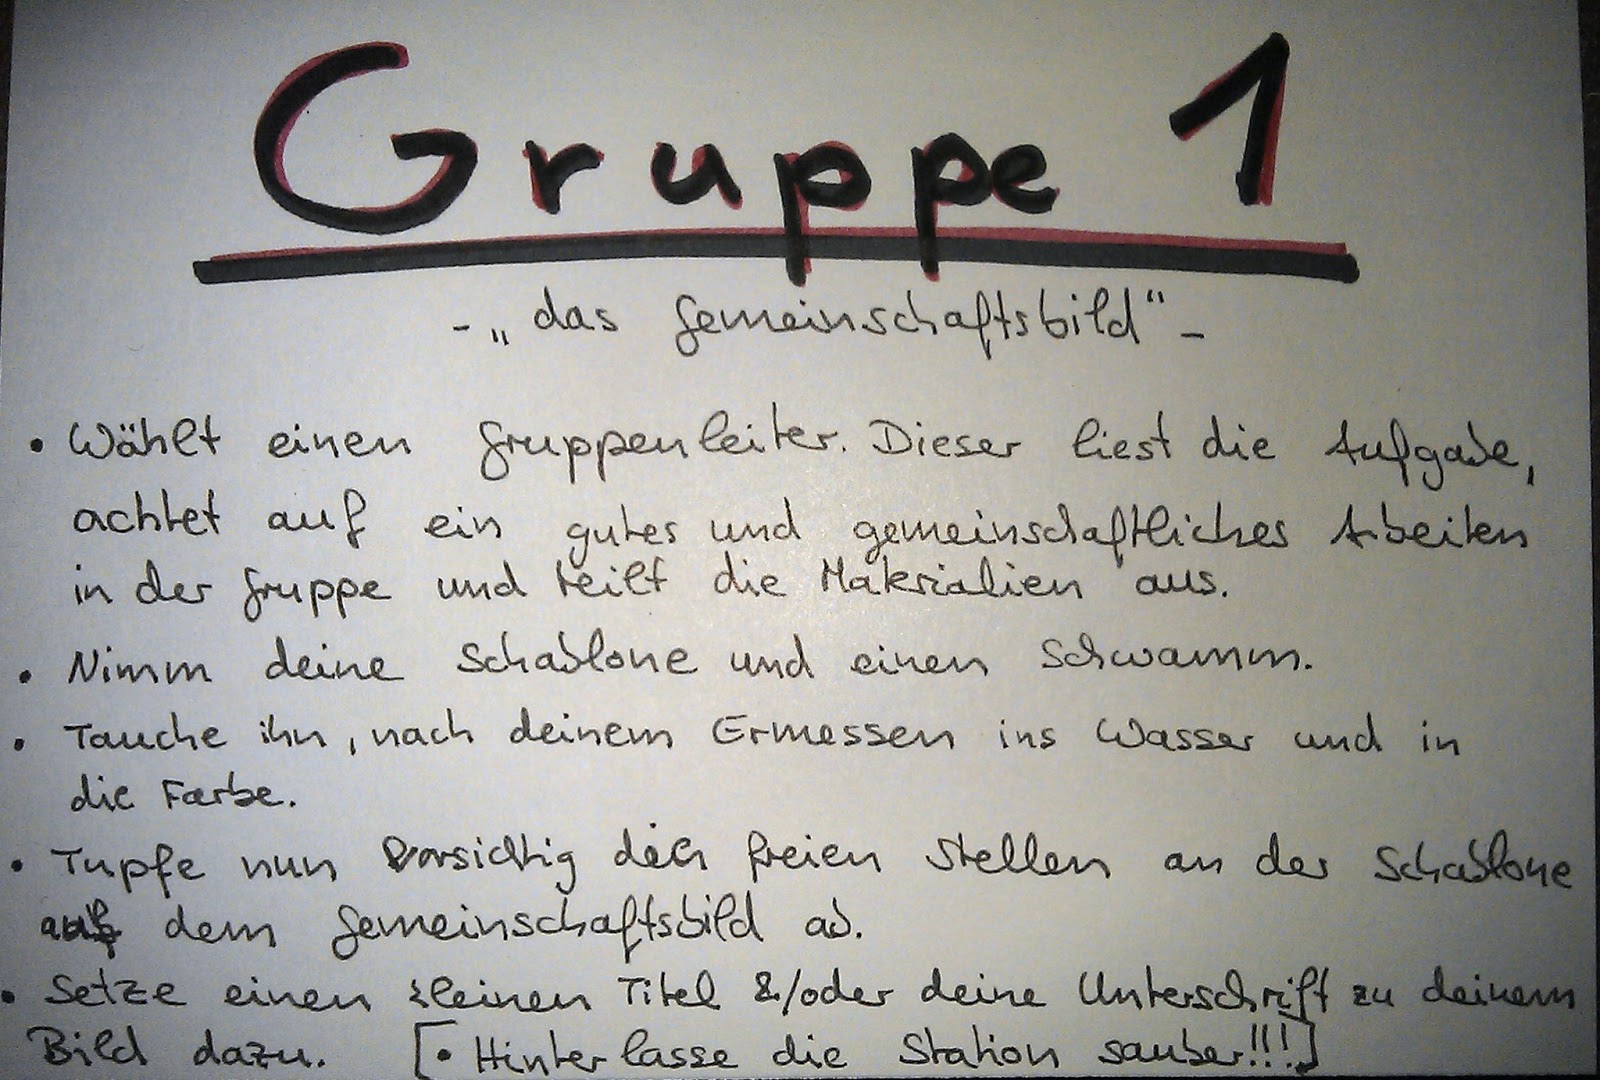 Gruppe 1
- „das Gemeinschaftsbild“ -
• Wählt einen Gruppenleiter. Dieser liest die Aufgabe,
achtet auf ein gutes und gemeinschaftliches Arbeiten
in der Gruppe und teilt die Materialien aus.
• Nimm deine Schablone und einen Schwamm.
• Tauche ihn, nach deinem Ermessen ins Wasser und in
die Farbe.
• Tupfe nun vorsichtig freien Stellen an der Schablone
auf dem Gemeinschaftsbild ab.
• Setze einen kleinen Titel &/oder deine Unterschrift zu deinem
Bild dazu. [• Hinterlasse die Station sauber!!!]